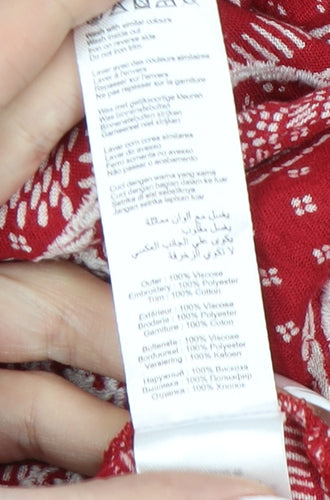 Wash with similar colours
Wash inside out
Iron on reverse side
Do not iron trim
Laver avec des couleurs similaires
Laver à l'envers
Repasser sur l'envers
Ne pas repasser sur la garniture
Was met gelijksoortige kleuren
Was binnenstebuiten
Binnenstebuiten strijken
Garneersel niet strijken
Lavar com cores similares
Lavar do avesso
Ferro somente no avesso
Não passar o acabamento
Cuci dengan warna yang sama
Cuci dengan bagian dalam ke luar
Setrika di sisi sebaliknya
Jangan setrika lapisan tepi
يغسل مع ألوان مماثلة
يغسل مقلوب
يكوى على الجانب العكسي
لا تكوى الزخرفة
Outer : 100% Viscose
Embroidery : 100% Polyester
Trim : 100% Cotton
Extérieur : 100% Viscose
Broderie : 100% Polyester
Garniture : 100% Coton
Buitenste : 100% Viscose
Borduursel : 100% Polyester
Versiering : 100% Katoen
Наружный : 100% Вискоза
Вышивка : 100% Полиэфир
Отделка : 100% Хлопок